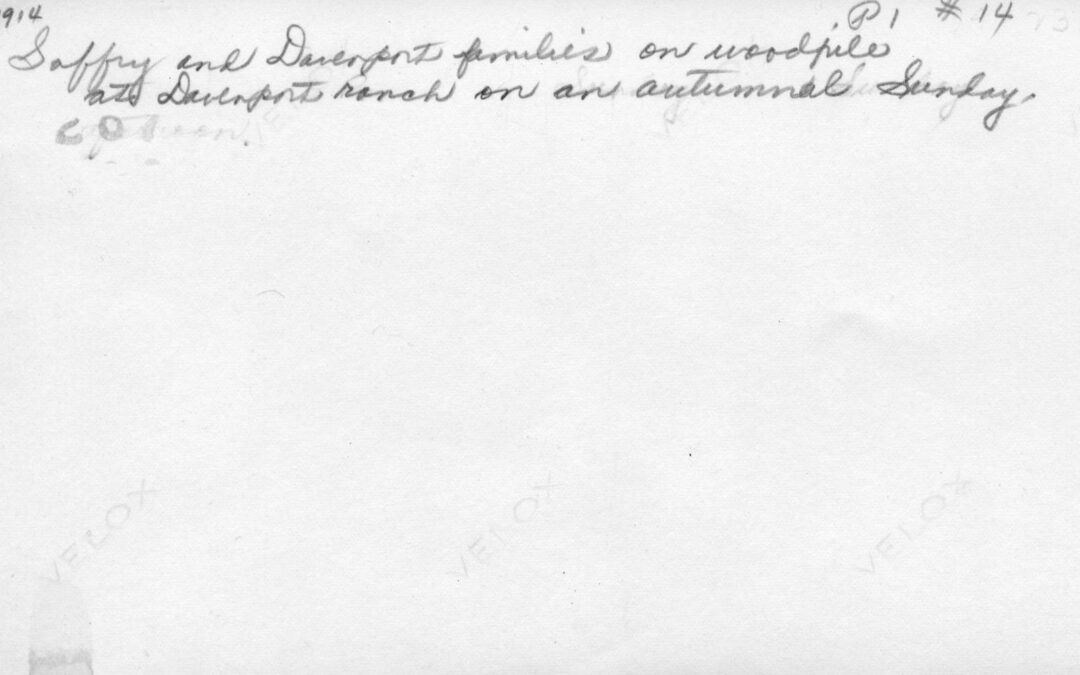 1914 P1 # 14
Saffry and Davenport families on woodpile
at Davenport ranch on an autumnal Sunday.
VELOX VELOX VELOX